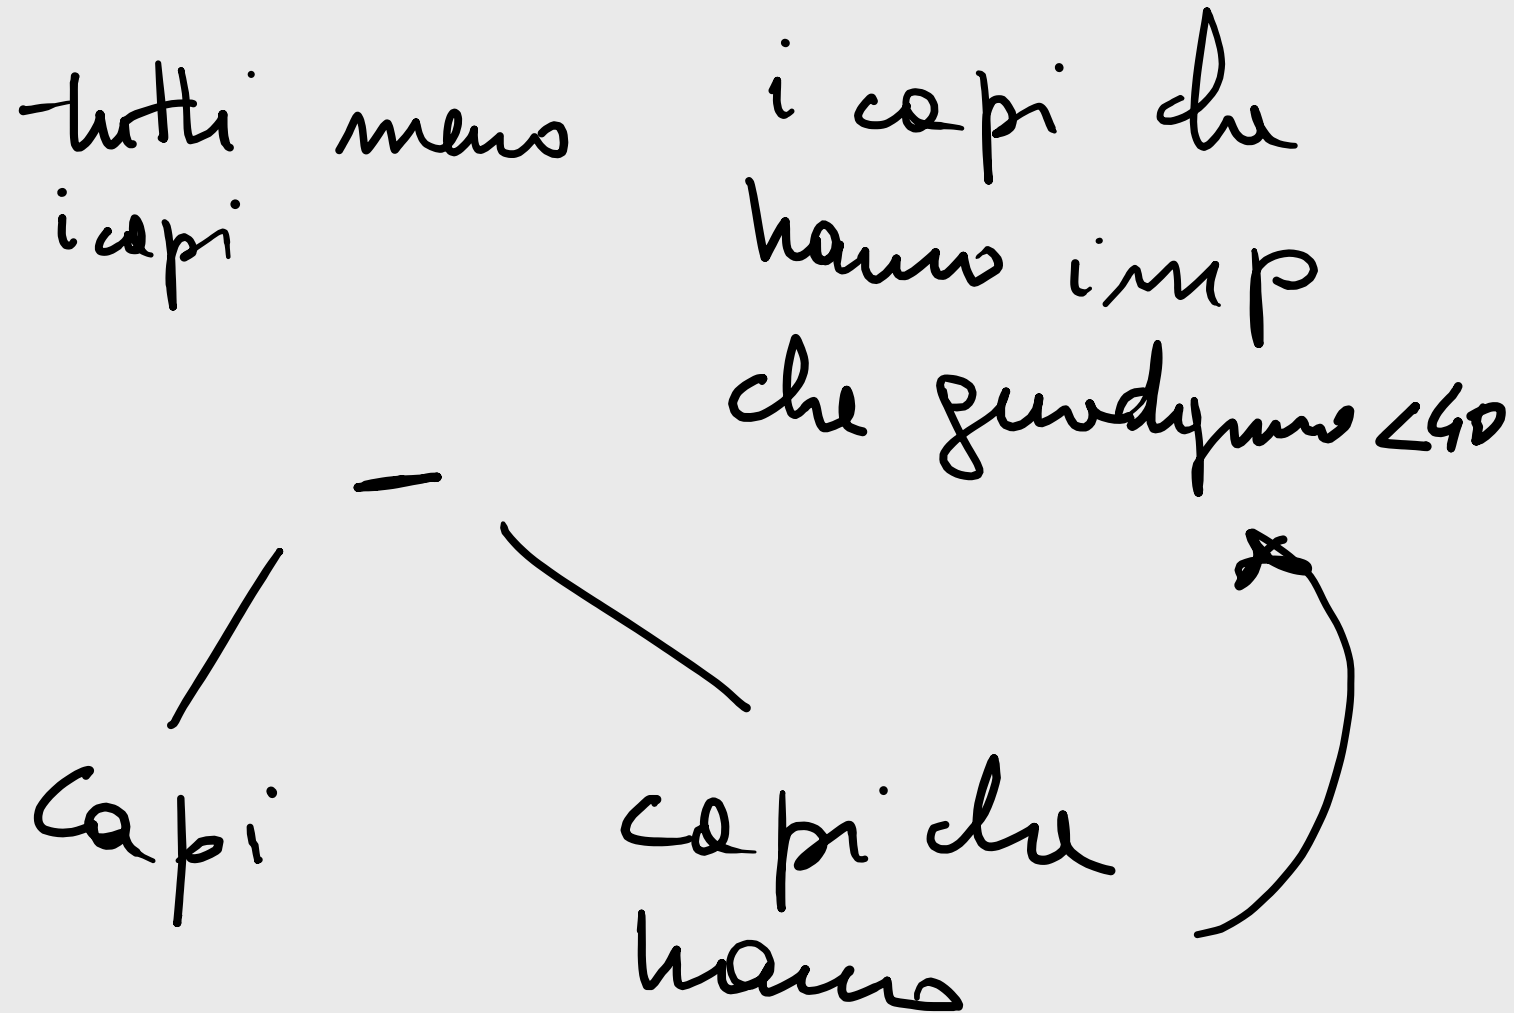 tutti meno
i capi
i capi che
hanno imp
che guadagnano <40
-
Capi
capi che
hanno